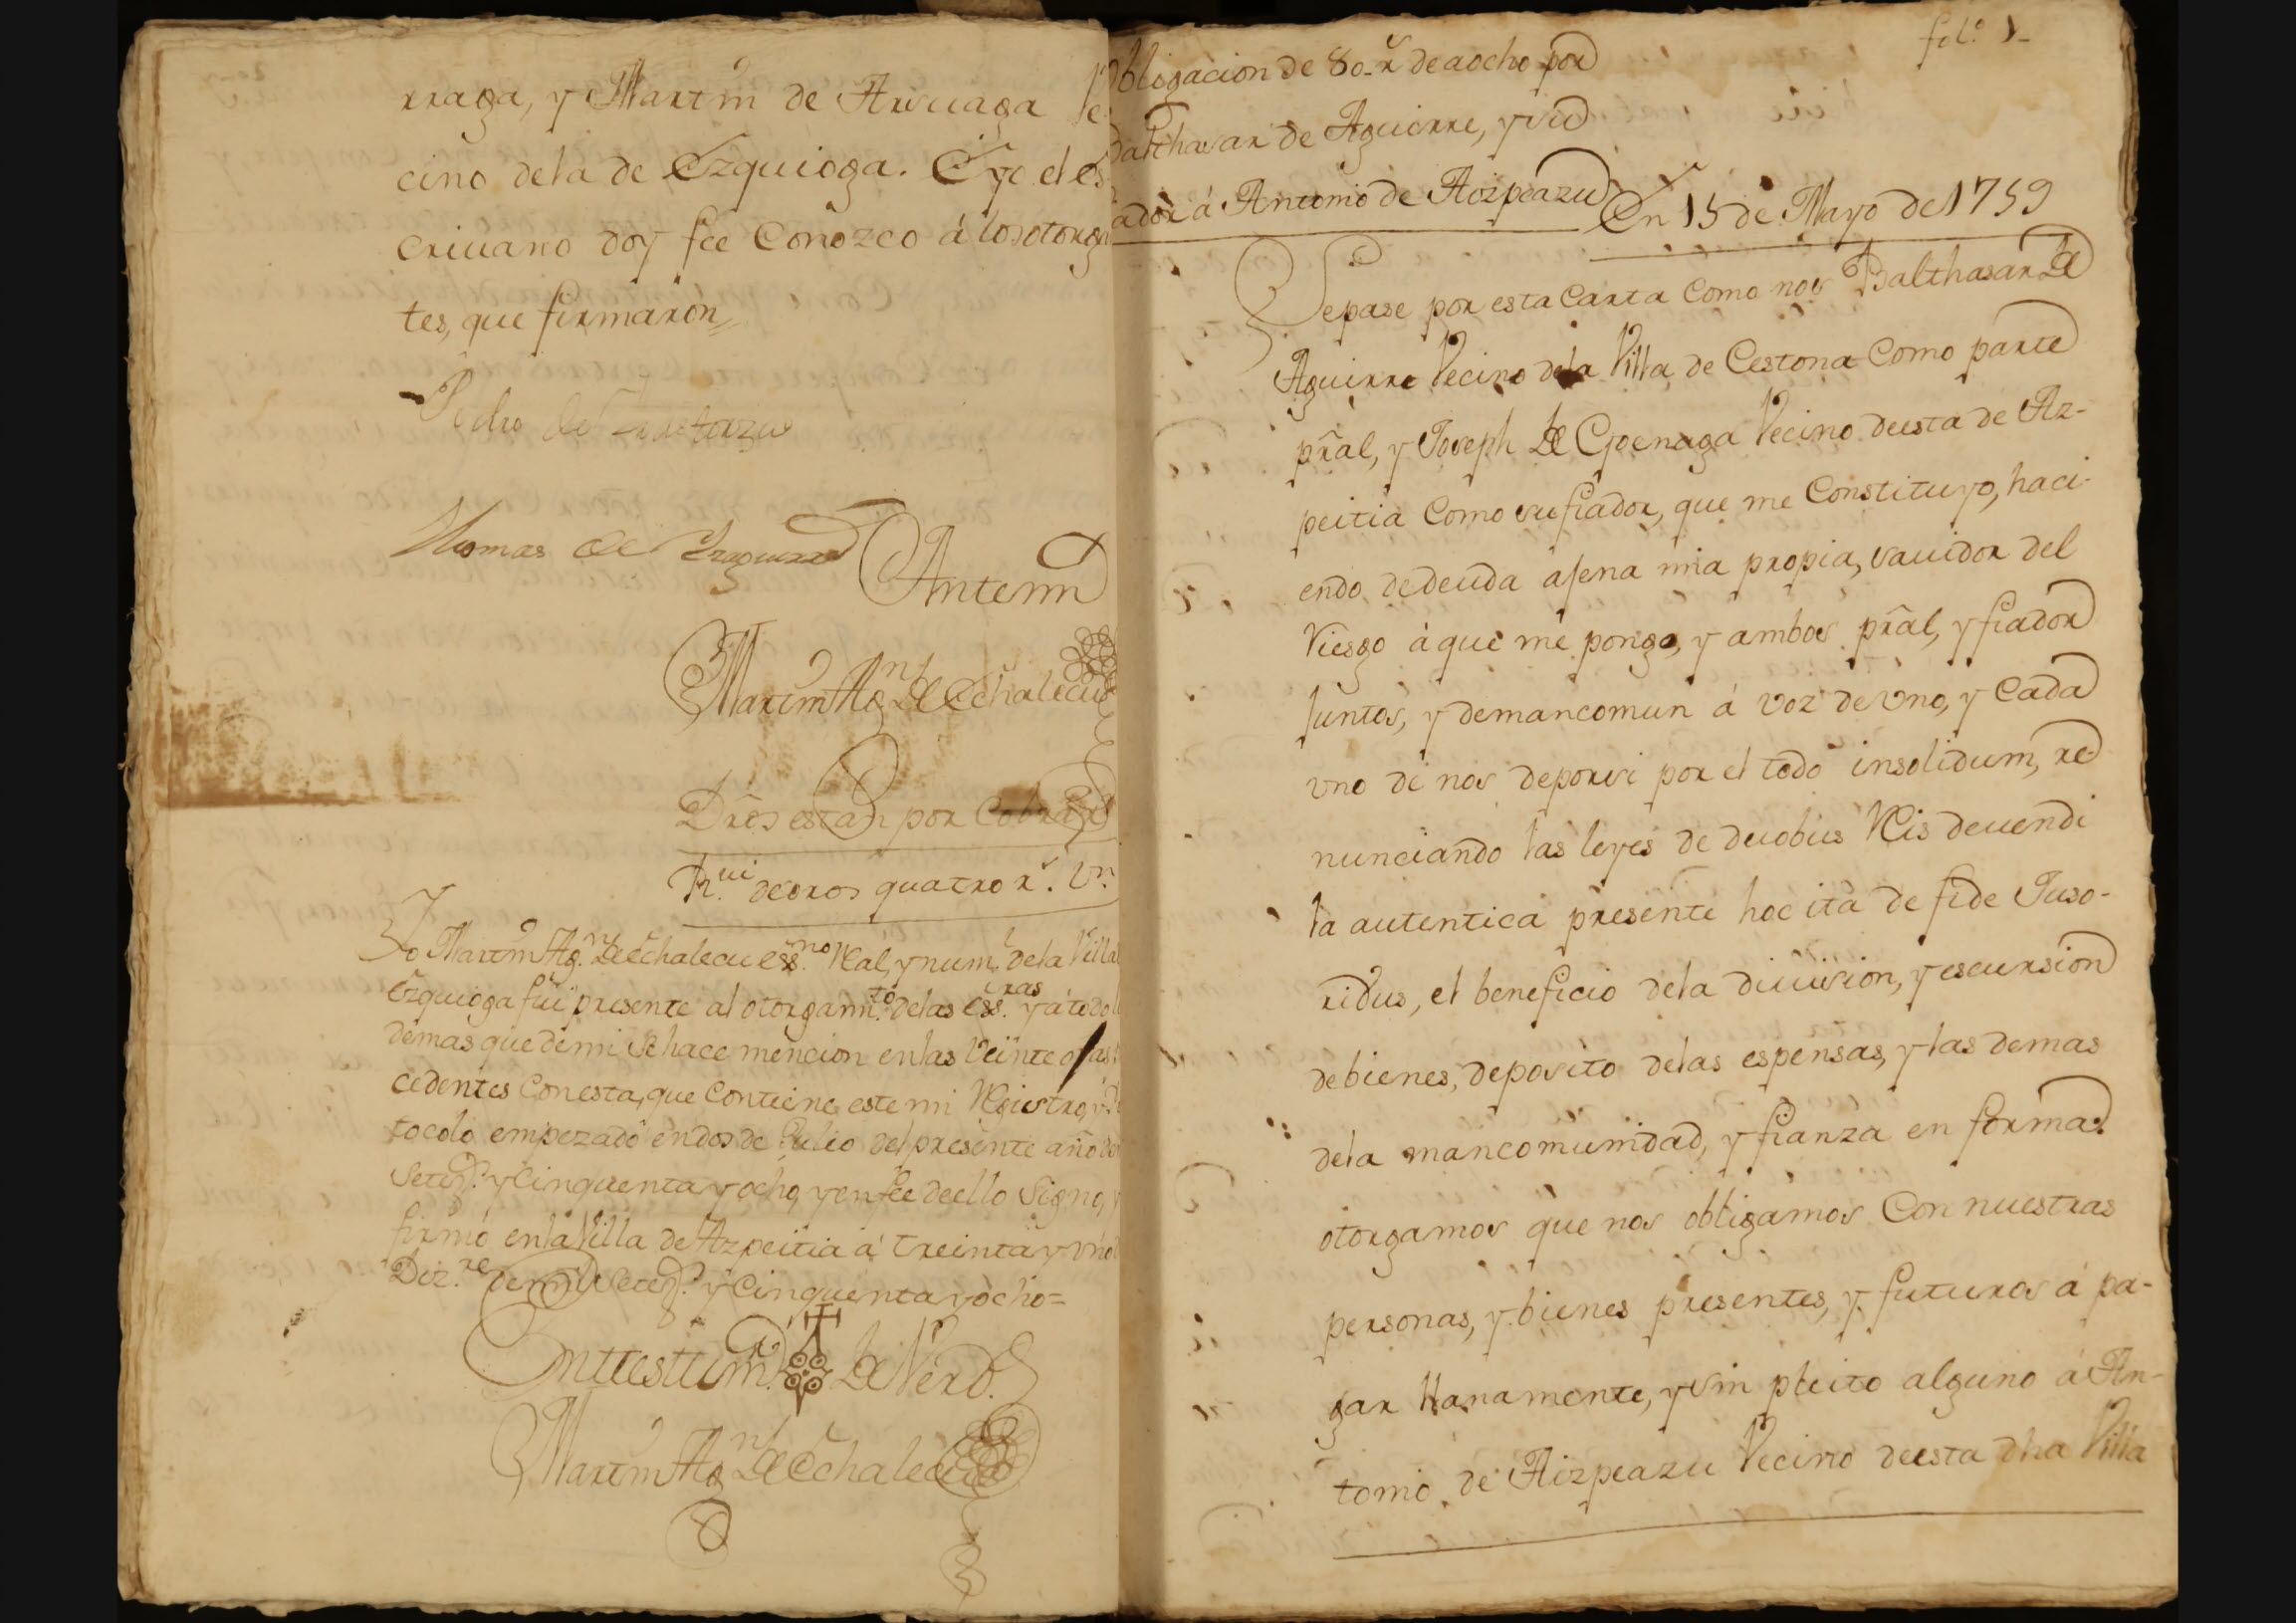 rraga, y Martin de Arruaga Ve
cino dela de Ezquioga. E yo el es
crivano doy fee Conozco á los otorga
tes, que firmaron
Pedro de
Thomas de Yzaguirre
Antemi
Martin Agn. de Echalecu
Dros estan por Cobrar
R.ui deoros quatro rs. Vn.
Yo Martin Agn. de Echalecu ess.no Real, y num.l dela Villa
Ezquioga fui presente al otorgam.to delas ess.ras y á todo
demas que demi se hace mencion enlas Veinte ojas
cedentes Con esta, que Contiene este mi Registro,
tocolo empezado en dos de Julio del presente año de
Setez.s y Cinquenta y ocho, y en fee de ello Signo, y
firmo enla Villa de Azpeitia á treinta y uno
Diz.re de mil Setez.s y Cinquenta y ocho=
En testim.o de Verd.
Martin Agn. de Echalecu
fol.o 1
Obligacion de 80 rs. de a ocho por
Balthasar de Aguirre, y su
ador á Antonio de Aizpeazu
En 15 de Mayo de 1759
Sepase por esta Carta Como nos Balthasar de
Aguirre Vecino dela Villa de Cestona Como parte
pral, y Joseph de Goenaga Vecino deesta de Az-
peitia Como su fiador, que me Constituyo, haci-
endo dedeuda ajena mia propia, savidor del
Riesgo á que me pongo, y ambos pral, y fiador
Juntos, y demancomun á voz de Uno, y Cada
uno de nos deporsi por el todo insolidum, re
nunciando las leyes de duobus Reis devendi
la autentica presente hoc ita de fide Juso-
ridus, el beneficio dela division, y escursion
debienes, deposito delas espensas, y las demas
dela mancomunidad, y fianza en forma.
otorgamos que nos obligamos Con nuestras
personas, y bienes presentes, y futuros á pa-
gar llanamente, y sin pleito alguno á An-
tonio de Aizpeazu Vecino deesta dha Villa